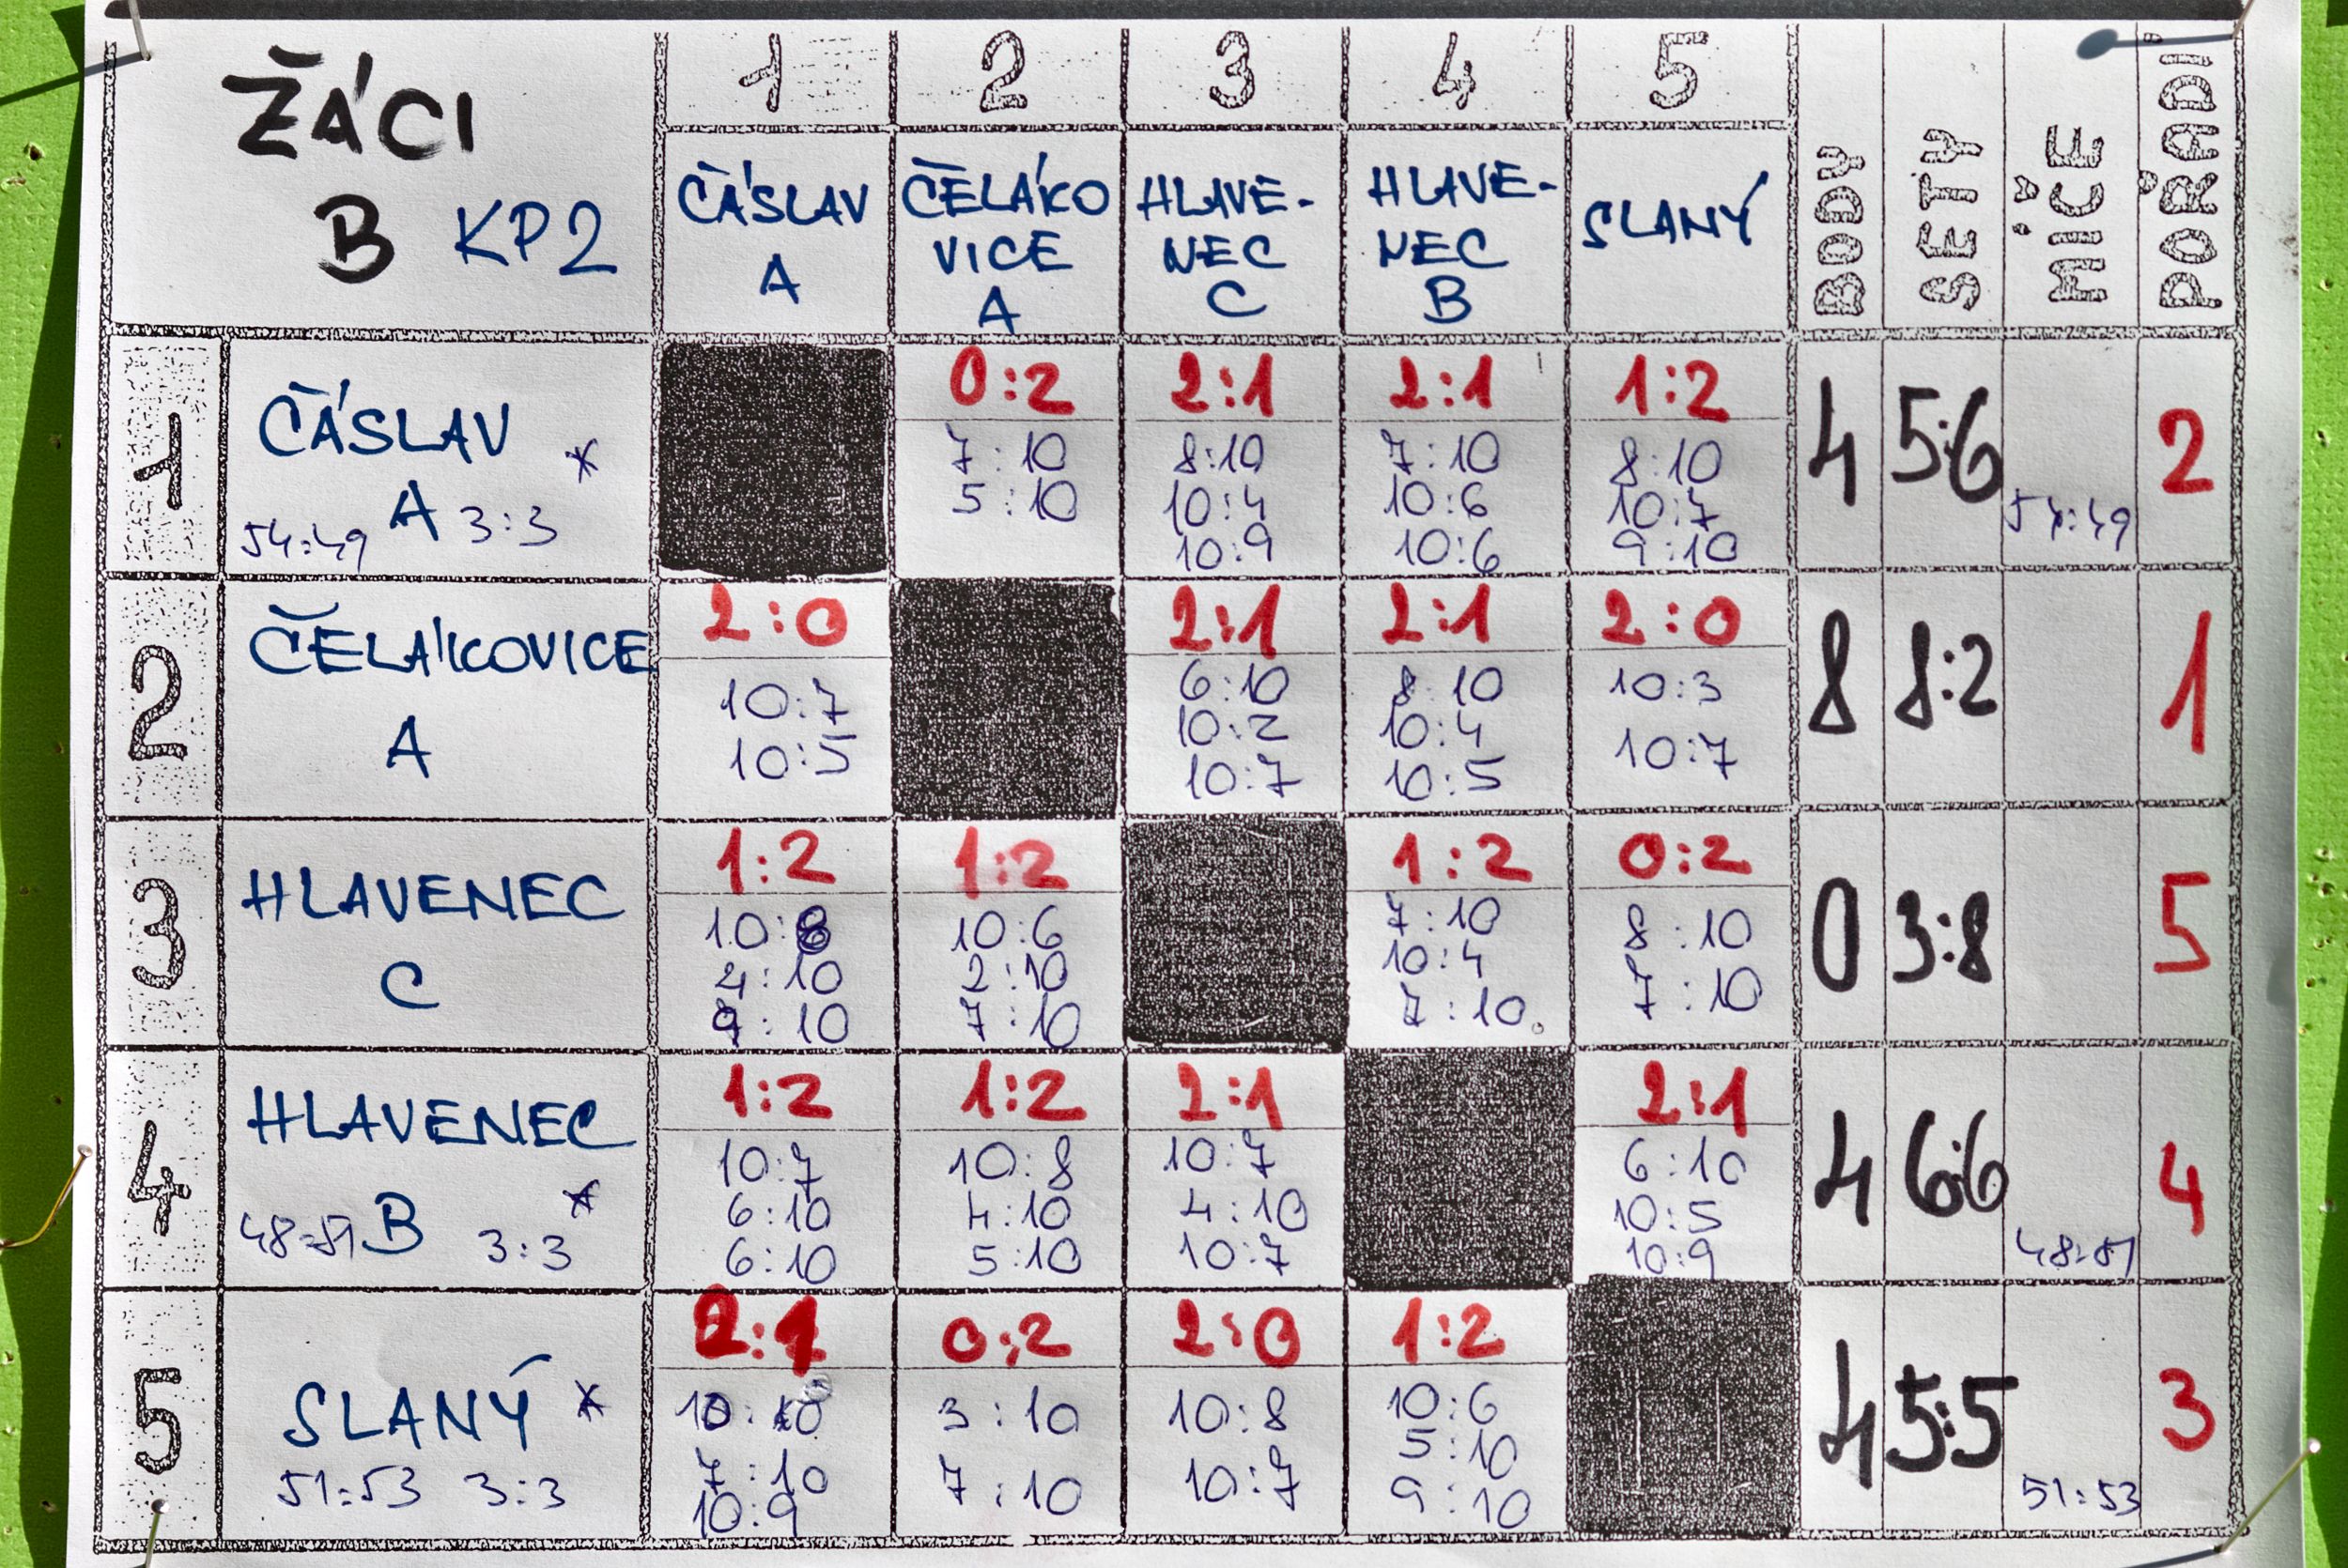 ŽÁCI
B KP2
1 2 3 4 5
ČÁSLAV
A
ČELÁKO
VICE
A
HLAVE-
NEC
C
HLAVE-
NEC
B
SLANÝ
BODY
SETY
MÍČE
POŘADÍ
1
ČÁSLAV *
A 3:3
54:49
0:2
7:10
5:10
2:1
8:10
10:4
10:9
2:1
7:10
10:6
10:6
1:2
8:10
10:7
9:10
4
5:6
54:49
2
2
ČELÁKOVICE
A
2:0
10:7
10:5
2:1
6:10
10:2
10:7
2:1
8:10
10:4
10:5
2:0
10:3
10:7
8
8:2
1
3
HLAVENEC
C
1:2
10:8
4:10
9:10
1:2
10:6
2:10
7:10
1:2
7:10
10:4
7:10
0:2
8:10
7:10
0
3:8
5
4
HLAVENEC
B *
3:3
1:2
10:7
6:10
6:10
1:2
10:8
4:10
5:10
2:1
10:7
4:10
10:7
2:1
6:10
10:5
10:9
4
6:6
4
5
SLANÝ *
51:53 3:3
2:1
7:10
10:9
0:2
3:10
7:10
2:0
10:8
10:7
1:2
10:6
5:10
9:10
4
5:5
51:53
3